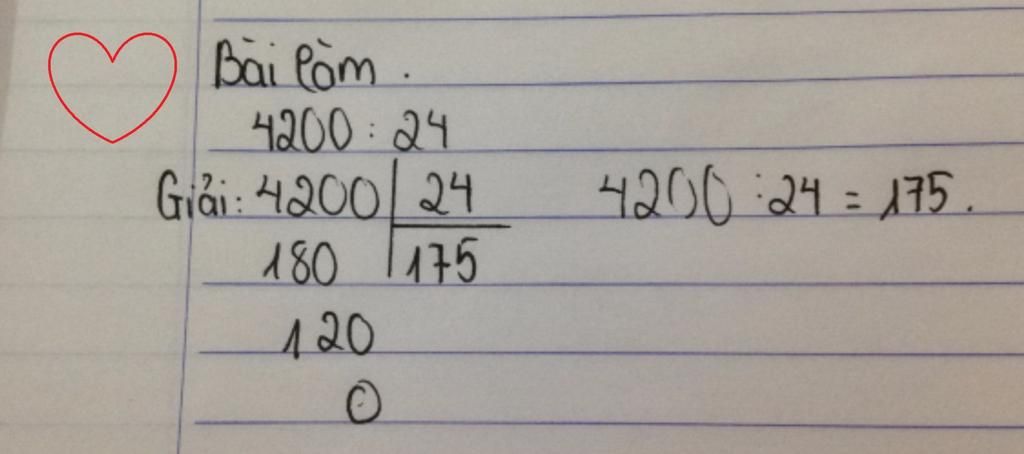 Bài làm.
4200 : 24
Giải: 4200 | 24 4200 : 24 = 175.
180 | 175
120
0